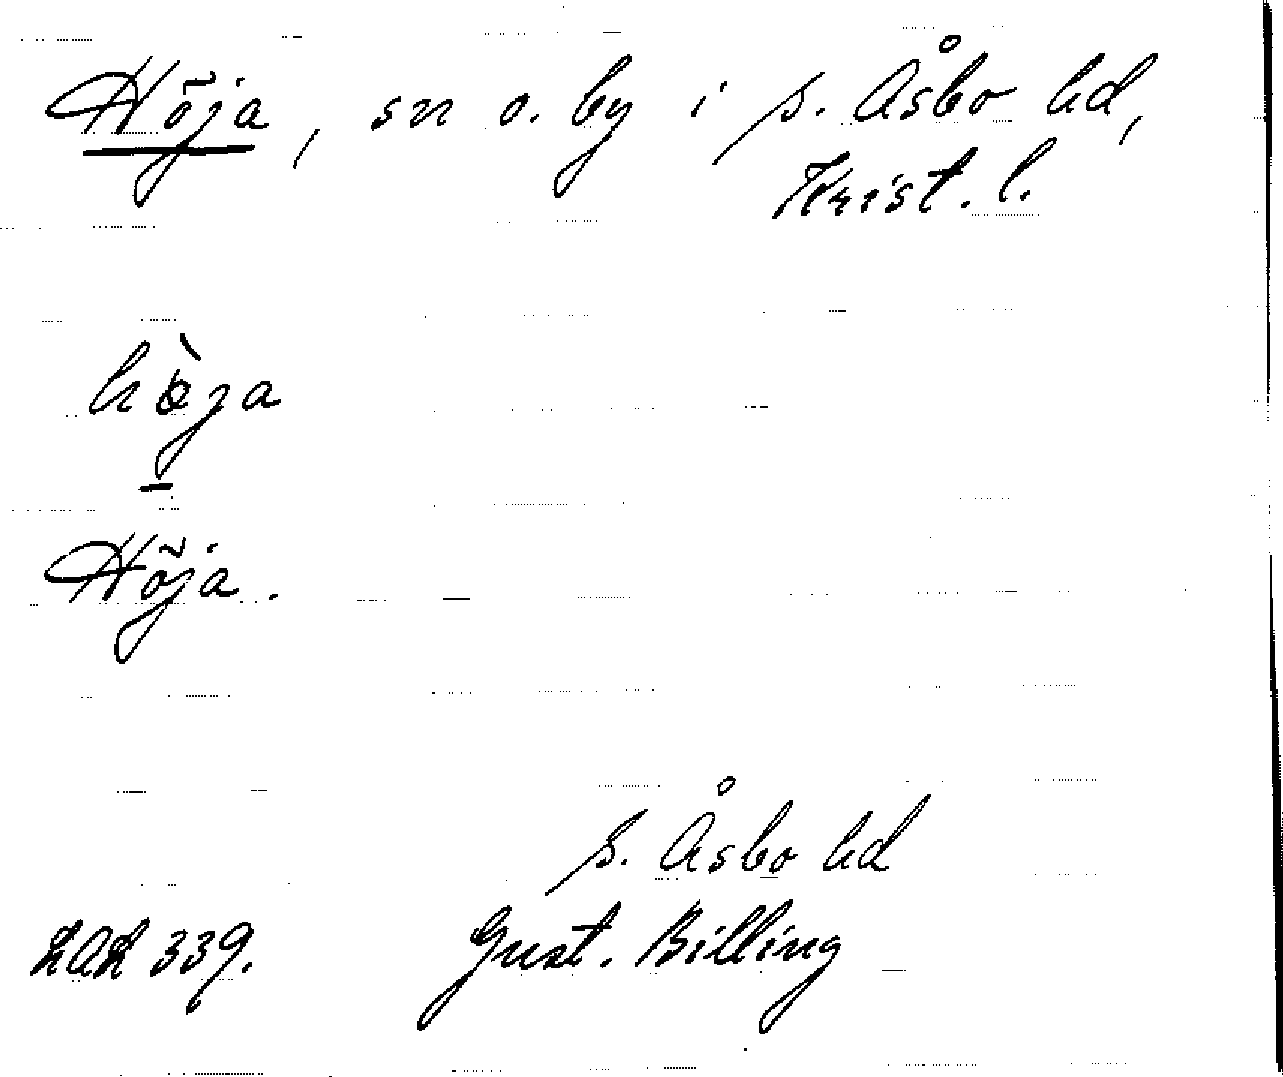 Höja, sn o. by i S. Åsbo hd,
Krist. l.
hòja
Höja.
S. Åsbo hd
LAL 339. Gust. Billing